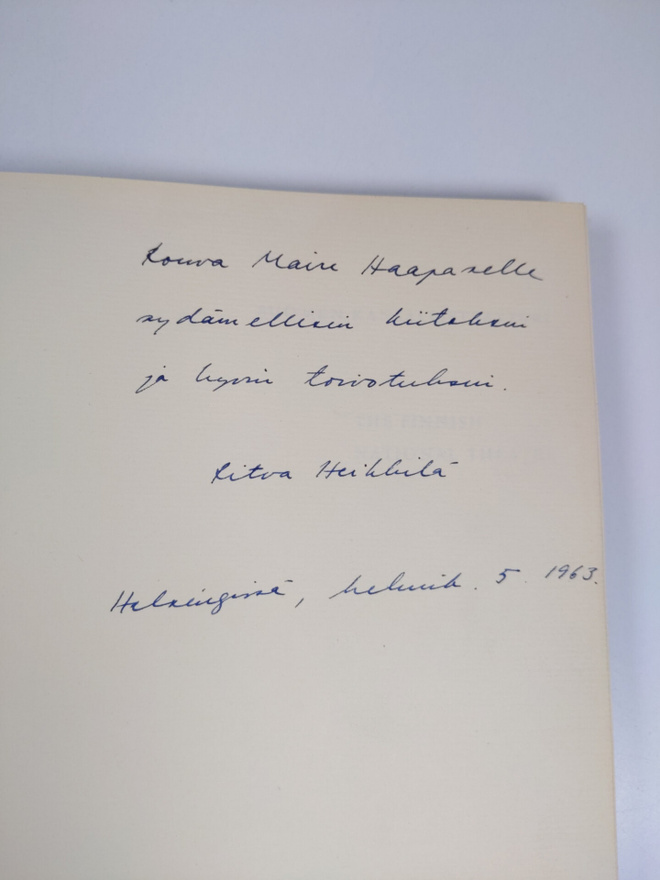 Rouva Maire Haapaselle
sydämellisin kiitoksin
ja hyvin toivotuksin.
Ritva Heikkilä
Helsingissä, helmik. 5. 1963.